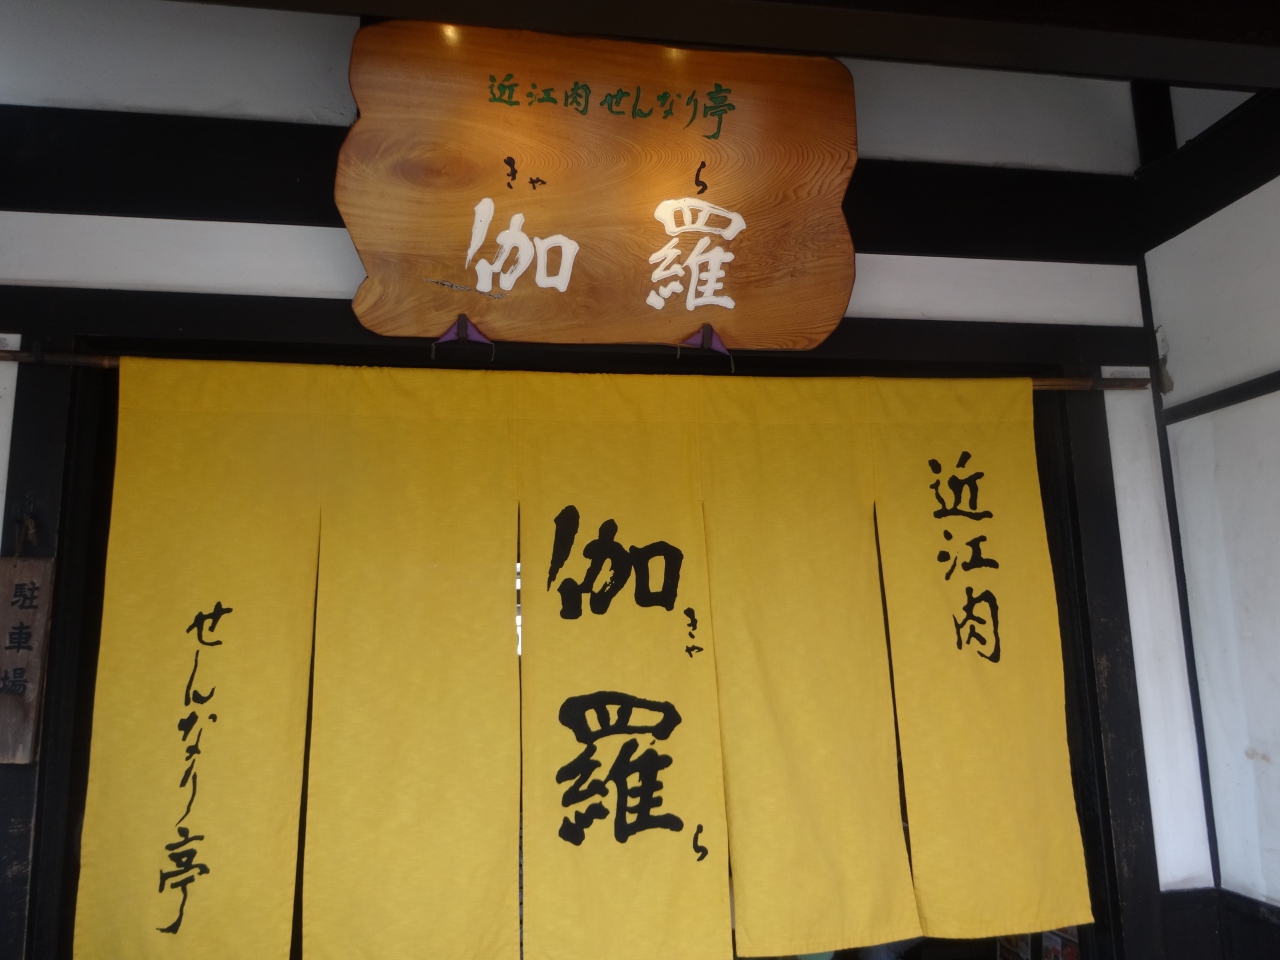 近江肉せんなり亭
きゃ ら
伽羅
近江肉
伽羅
きゃ
ら
せんなり亭
駐車場